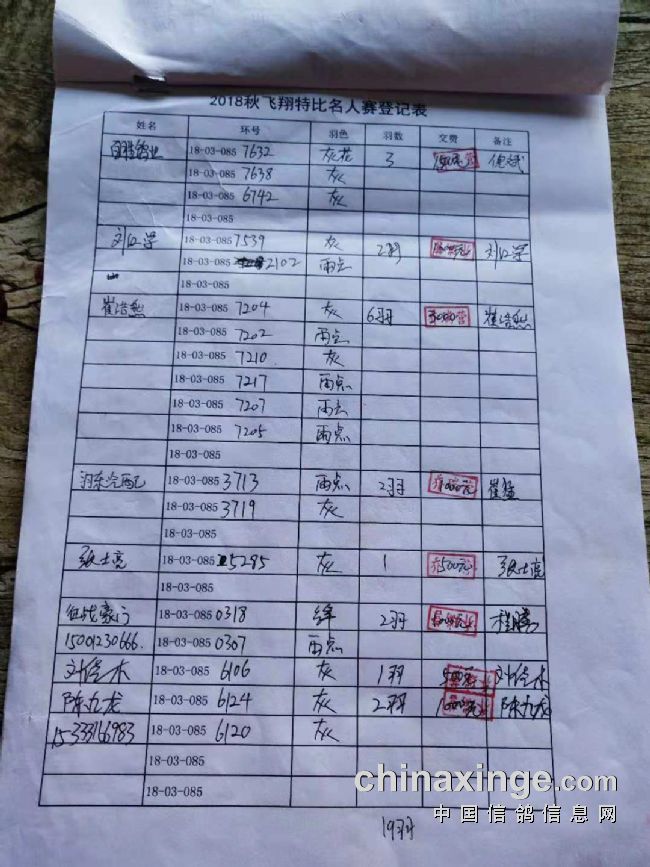 2018秋飞翔特比名人赛登记表
姓名 环号 羽色 羽数 交费 备注
18-03-085 7632 灰花 3
18-03-085 7638 灰
18-03-085 6742 灰
18-03-085
18-03-085 7539 灰 2羽
18-03-085 2102 雨点
18-03-085
崔浩然 18-03-085 7204 灰 6羽 崔浩然
18-03-085 7202 雨点
18-03-085 7210 灰
18-03-085 7217 雨点
18-03-085 7207 雨点
18-03-085 7205 雨点
18-03-085
18-03-085 3713 雨点 2羽 崔猛
18-03-085 3719 灰
18-03-085
张士亮 18-03-085 5285 灰 1 500元 张士亮
18-03-085
征战豪门 18-03-085 0318 绛 2羽 程腾
15001230666. 18-03-085 0307 雨点
18-03-085 6106 灰 1羽
陈九龙 18-03-085 6124 灰 2羽 陈九龙
15333166983 18-03-085 6120 灰
18-03-085
18-03-085
19羽
chinaxinge.com
中国信鸽信息网